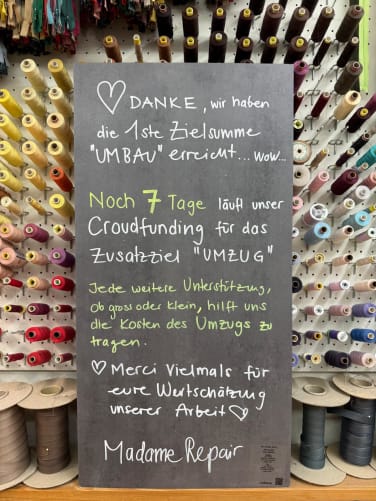 ♡ DANKE, wir haben
die 1ste Zielsumme
"UMBAU" erreicht... wow...
Noch 7 Tage läuft unser
Croudfunding für das
Zusatzziel "UMZUG"
Jede weitere Unterstützung,
ob gross oder klein, hilft uns
die Kosten des Umzugs zu
tragen.
♡ Merci Vielmals für
eure Wertschätzung
unserer Arbeit ♡
Madame Repair